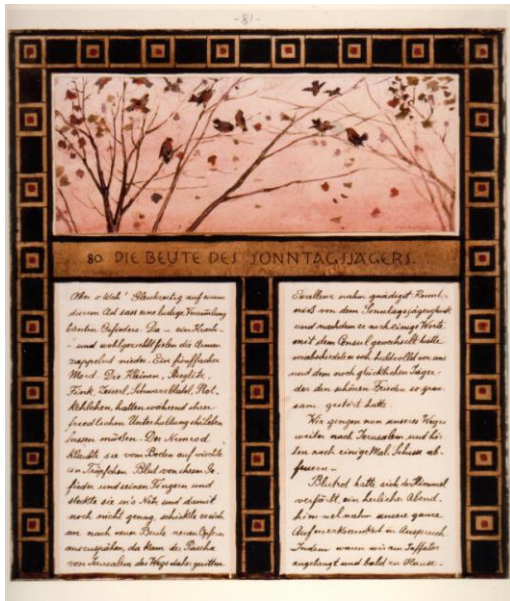 -81-
80. DIE BEUTE DES SONNTAGSJÄGERS.
Aber o Weh! Gleichzeitig auf einem
dürren Ast sass eine lustige Versammlung
bunten Gefieders. Da – ein Krach –
– und wohlgezielt fielen die Armen
zappelnd nieder. Ein fünffacher
Mord. Die Kleinen, Stieglitz,
Fink, Zeiserl, Schwarzblatel, Rot-
kehlchen, hatten während ihrer
friedlichen Unterhaltung ihr Leben
lassen müssen. Der Nimrod
klaubte sie vom Boden auf wischte
ein Tröpfchen Blut von ihrem Ge-
fieder und seinen Fingern und
steckte sie in's Netz und damit
noch nicht genug, schickte er sich
an nach neuer Beute neuen Opfern
auszuspähen, da kam der Pascha
von Jerusalem des Wegs daher geritten.
Excellenz nahm gnädigst Kennt-
niss von dem Sonntagsjägerglück
und nachdem er noch einige Worte
mit dem Consul gewechselt hatte
verabschiedete er sich huldvollst von uns
und dem noch glücklichen Jäger
der den schönen Frieden so grau-
sam gestört hatte.
Wir gingen nun unseres Weges
weiter nach Jerusalem und hör-
ten noch einige Mal Schüsse ab-
feuern –
Blutrot hatte sich der Himmel
verfärbt, ein herlicher Abend-
himmel nahm unsere ganze
Aufmerksamkeit in Anspruch.
Indem waren wir am Jaffator
angelangt und bald zu Hause.